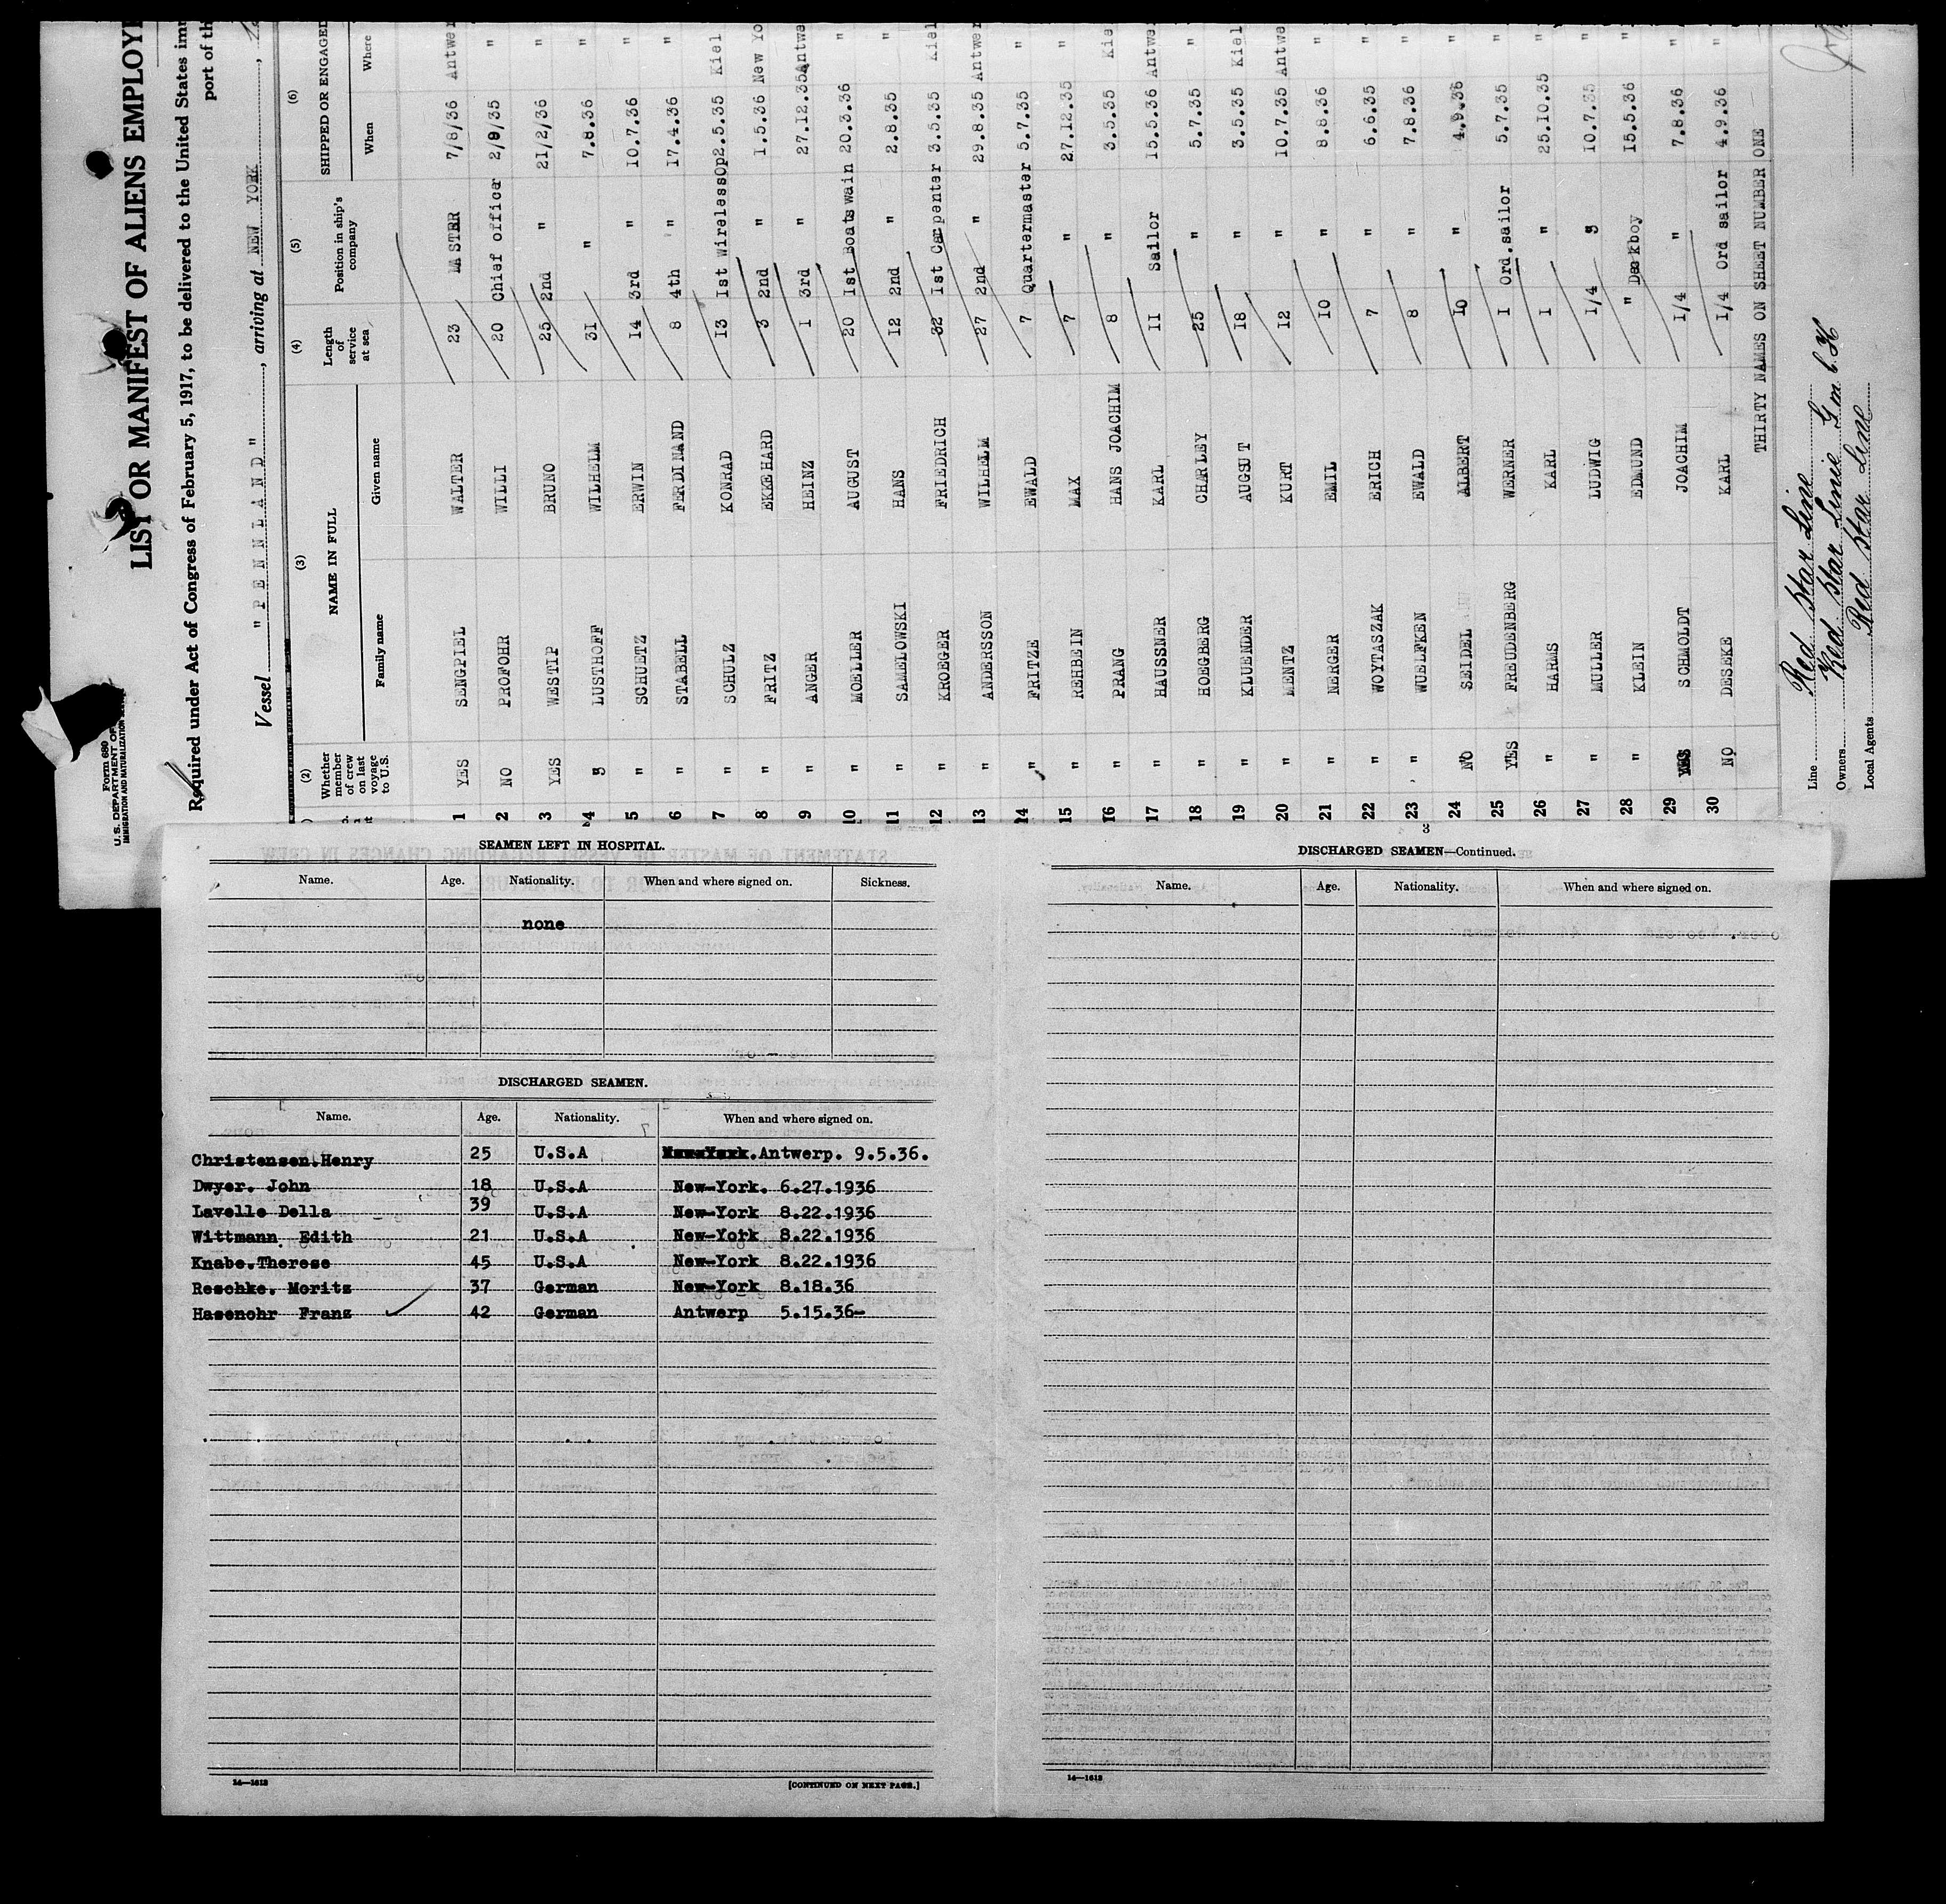 Form 680
U.S. DEPARTMENT OF
IMMIGRATION AND NATURALIZATION
LIST OR MANIFEST OF ALIENS EMPLOY
Required under Act of Congress of February 5, 1917, to be delivered to the United States im
port of th
Vessel "PENNLAND", arriving at NEW YORK,
(2) (3) (4) (5) (6)
Whether member of crew on last voyage to U.S. NAME IN FULL Length of service at sea Position in ship's company SHIPPED OR ENGAGED
Family name Given name When Where
1 YES SENGPIEL WALTER 23 MASTER 7/8/36 Antwer
2 NO PROFOHR WILLI 20 Chief officer 2/9/35 "
3 YES WESTIP BRUNO 25 2nd " 21/2/36 "
4 " LUSTHOFF WILHELM 31 " 7.8.36 "
5 " SCHUETZ ERWIN 14 3rd " 10.7.36 "
6 " STABELL FERDINAND 8 4th " 17.4.36 "
7 " SCHULZ KONRAD 13 1st WirelessOp 2.5.35 Kiel
8 " FRITZ EKKEHARD 3 2nd " 1.5.36 New Yo
9 " ANGER HEINZ 1 3rd " 27.12.35 Antwe
10 " MOELLER AUGUST 20 1st Boatswain 20.3.36 "
11 " SAMELOWSKI HANS 12 2nd " 2.8.35 "
12 " KROEGER FRIEDRICH 32 1st Carpenter 3.5.35 Kiel
13 " ANDERSSON WILHELM 27 2nd " 29.8.35 Antwer
14 " FRITZE EWALD 7 Quartermaster 5.7.35 "
15 " REHBEIN MAX 7 " 27.12.35 "
16 " PRANG HANS JOACHIM 8 " 3.5.35 Kie
17 " HAUSSNER KARL 11 Sailor 15.5.36 Antwe
18 " HOEGBERG CHARLEY 25 " 5.7.35 "
19 " KLUENDER AUGSUT 18 " 3.5.35 Kiel
20 " MENTZ KURT 12 " 10.7.35 Antwe
21 " NERGER EMIL 10 " 8.8.36 "
22 " WOYTASZAK ERICH 7 " 6.6.35 "
23 " WUELFKEN EWALD 8 " 7.8.36 "
24 NO SEIDEL ALBERT 10 " 4.9.36 "
25 YES FREUDENBERG WERNER 1 Ord.sailor 5.7.35 "
26 " HARMS KARL 1 " 25.10.35 "
27 " MULLER LUDWIG 1/4 " 10.7.35 "
28 " KLEIN EDMUND " Deckboy 15.5.36 "
29 YES SCHMOLDT JOACHIM 1/4 " 7.8.36 "
30 NO DESEKE KARL 1/4 Ord sailor 4.9.36 "
THIRTY NAMES ON SHEET NUMBER ONE
Line Red Star Line
Owners Red Star Linie G m b H
Local Agents Red Star Line
SEAMEN LEFT IN HOSPITAL.
Name. Age. Nationality. When and where signed on. Sickness.
none
DISCHARGED SEAMEN.
Name. Age. Nationality. When and where signed on.
Christensen.Henry 25 U.S.A New York.Antwerp. 9.5.36.
Dwyer. John 18 U.S.A New-York. 6.27.1936
Lavelle Della 39 U.S.A New-York 8.22.1936
Wittmann Edith 21 U.S.A New-York 8.22.1936
Knabe.Therese 45 U.S.A New-York 8.22.1936
Reschke. Moritz 37 German New-York 8.18.36
Hasenohr Franz 42 German Antwerp 5.15.36-
14—1613
[CONTINUED ON NEXT PAGE.]
3
DISCHARGED SEAMEN—Continued.
Name. Age. Nationality. When and where signed on.
14—1613